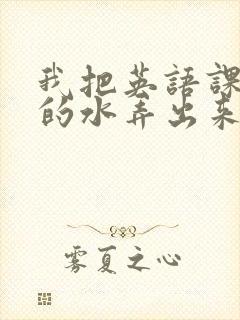 我把英語課
的水弄出來
雾夏之心